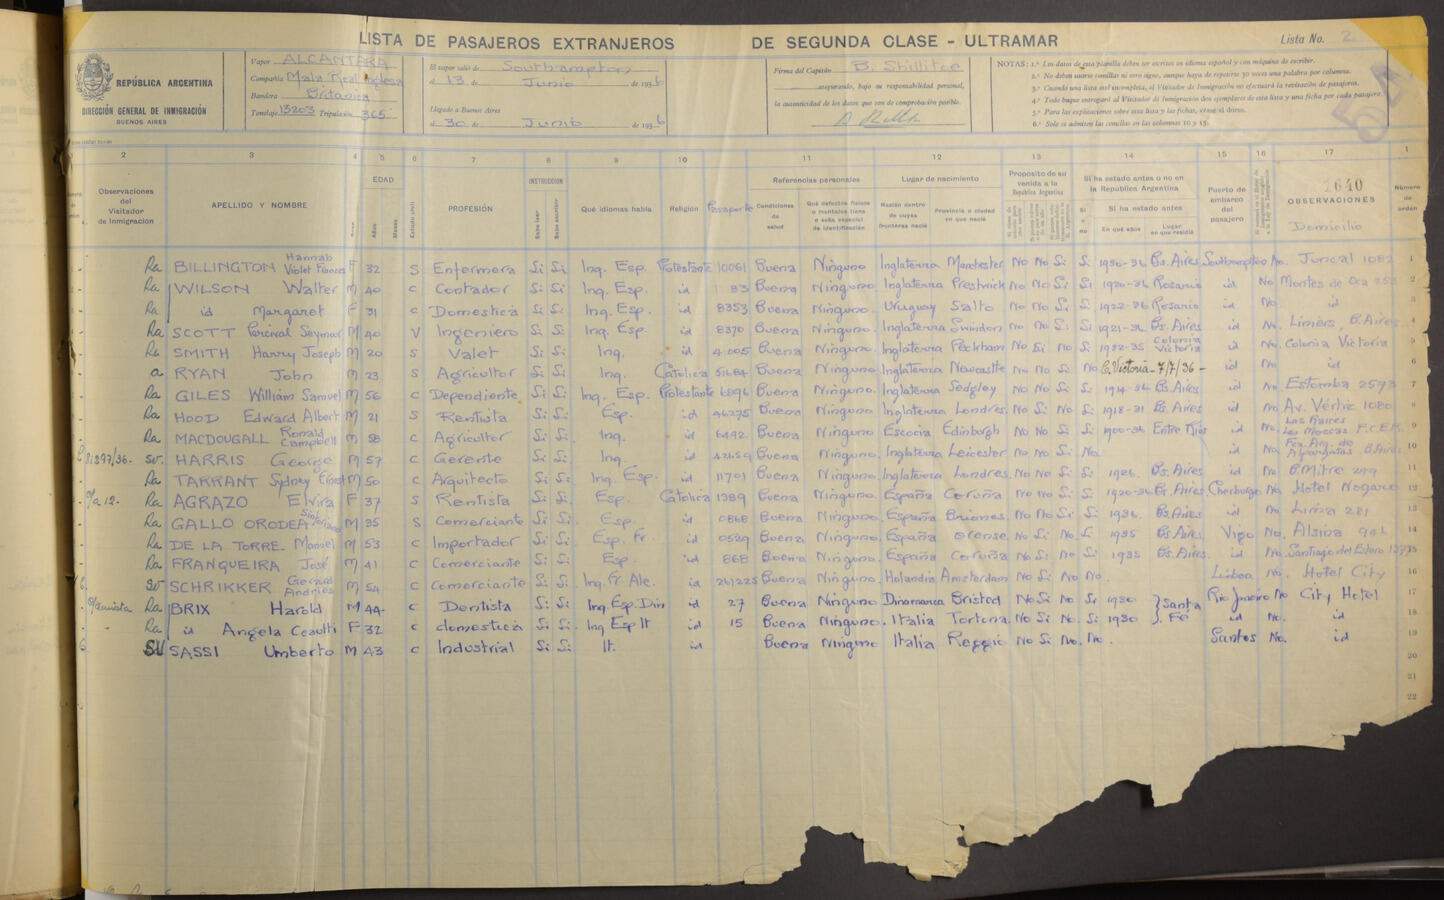 LISTA DE PASAJEROS EXTRANJEROS DE SEGUNDA CLASE - ULTRAMAR Lista No. 2
REPÚBLICA ARGENTINA
DIRECCIÓN GENERAL DE INMIGRACIÓN
BUENOS AIRES
Vapor ALCANTARA
Compañía Mala Real Inglesa
Bandera Britanica
Tonelaje 13203 Tripulación 365
El vapor salió de Southampton
el 13 de Junio de 1936
Llegado a Buenos Aires
el 30 de Junio de 1936
Firma del Capitán B. Shillitoe
asegurando, bajo su responsabilidad personal,
la autenticidad de los datos que son de comprobación posible.
NOTAS: 1.ª Los datos de esta planilla deben ser escritos en idioma español y con máquina de escribir.
2.ª No deben usarse comillas ni otro signo, aunque haya de repetirse 30 veces una palabra por columna.
3.ª Cuando una lista esté incompleta, el Visitador de Inmigración no efectuará la revisación de pasajeros.
4.ª Todo buque entregará al Visitador de Inmigración dos ejemplares de esta lista y una ficha por cada pasajero.
5.ª Para las explicaciones sobre esta lista y las fichas, véase el dorso.
6.ª Solo se admiten las comillas en las columnas 10 y 15.
2 3 4 5 6 7 8 9 10 11 12 13 14 15 16 17 1
Observaciones del Visitador de Inmigración
APELLIDO Y NOMBRE
EDAD
Años
Meses
Estado civil
PROFESIÓN
INSTRUCCION
Sabe leer
Sabe escribir
Qué idiomas habla
Religión
Pasaporte
Referencias personales
Condiciones de salud
Qué defectos físicos o mentales tiene o seña especial de identificación
Lugar de nacimiento
Nación dentro de cuyas fronteras nació
Provincia o ciudad en que nació
Propósito de su venida a la República Argentina
Si ha estado antes o no en la República Argentina
Si o no
Si ha estado antes
En qué años
Lugar en que residió
Puerto de embarco del pasajero
1640
OBSERVACIONES
Domicilio
Número de orden
Ra BILLINGTON Hannah Violet Frances F 32 S Enfermera Si Si Inq. Esp. Protestante 10061 Buena Ninguno Inglaterra Manchester No No Si Si 1930-36 Bs. Aires Southampton No. Juncal 1082 1
Ra WILSON Walter M 40 C Contador Si Si Inq. Esp. id 83 Buena Ninguno Inglaterra Prestwich No No Si Si 1920-36 Rosario id No Montes de Oca 2
Ra id Margaret F 31 C Domestica Si Si Inq. Esp. id 8353 Buena Ninguno Uruguay Salto No No Si Si 1922-36 Rosario id No. id 3
Ra SCOTT Percival Seymor M 40 V Ingeniero Si Si Inq. Esp. id 8370 Buena Ninguno. Inglaterra Swindon No No Si Si 1921-36 Bs. Aires id No. Limers, B. Aires 4
Ra SMITH Harry Joseph M 20 S Valet Si Si Inq. id 4005 Buena Ninguno. Inglaterra Peckham No Si No Si 1932-35 Colonia Victoria id No. Colonia Victoria
a RYAN John M 23 S Agricultor Si Si Inq. Catolica Buena Ninguno. Inglaterra Newcastle No No Si No C. Victoria - 7/7/36 - id No id 6
Ra GILES William Samuel M 56 C Dependiente Si Si Inq. Esp. Protestante 6896 Buena Ninguno Inglaterra Sedgley No No Si Si 1914-36 Bs. Aires id No Estomba 2593 7
Ra HOOD Edward Albert M 21 S Rentista Si Si Esp. id 46275 Buena Ninguno Inglaterra Londres. No Si No Si 1918-31 Bs. Aires id No Av. Vértiz 1080 8
Ra MACDOUGALL Ronald Campbell M 58 C Agricultor Si Si Inq. id 6492 Buena Ninguno Escocia Edinburgh No No Si Si 1900-36 Entre Rios id No. Las Raices F.C.E.R. 9
81297/36. SV. HARRIS George M 57 C Gerente Si Si Inq. id 42659 Buena Ninguno. Inglaterra Leicester No No Si No. id No. Fca. Arg. de Alpargatas B Aires 10
Ra TARRANT Sydney Ernest M 50 C Arquitecto Si Si Inq. Esp. id 11701 Buena Ninguno. Inglaterra Londres. No No Si Si 1926. Bs. Aires id No B. Mitre 299 11
Ra AGRAZO Elvira F 37 S Rentista Si Si Esp. Catolica 1989 Buena Ninguno. España Coruña No No Si Si 1920-36 Bs. Aires. Cherburgo No. Hotel Nogaro 12
Ra GALLO ORODEA M 35 S Comerciante Si Si Esp. id 0868 Buena Ninguno. España Briones. No No Si Si 1936. Bs Aires id No Lima 281
Ra DE LA TORRE Manuel M 53 C Importador Si Si Esp. Fr. id 0529 Buena Ninguno. España Orense No Si No. Si 1935 Bs Aires. Vigo No. Alsina 14
Ra FRANQUEIRA José M 41 C Comerciante Si Si Esp. id 868 Buena Ninguno. España Coruña No Si No Si 1935 Bs. Aires. id No. Santiago del Estero
SV SCHRIKKER Gerard Andries M 54 C Comerciante Si Si Inq. Fr. Ale. id 261225 Buena Ninguno. Holandia Amsterdam No Si No No. Lisboa No. Hotel City 16
Ra BRIX Harold M 44 C Dentista Si Si Inq. Esp. Din id 27 Buena Ninguno Dinamarca Bristed No Si No Si 1930 } Santa Fé Rio Janeiro No City Hotel 17
Ra id Angela Ceautti F 32 C domestica Si Si Inq Esp It id 15 Buena Ninguno. Italia Tortona No Si No. Si 1930 id No. id 18
SV SASSI Umberto M 43 C Industrial Si Si It. id Buena Ninguno Italia Reggio No Si No. No. Santos No. id 19
20
21
22